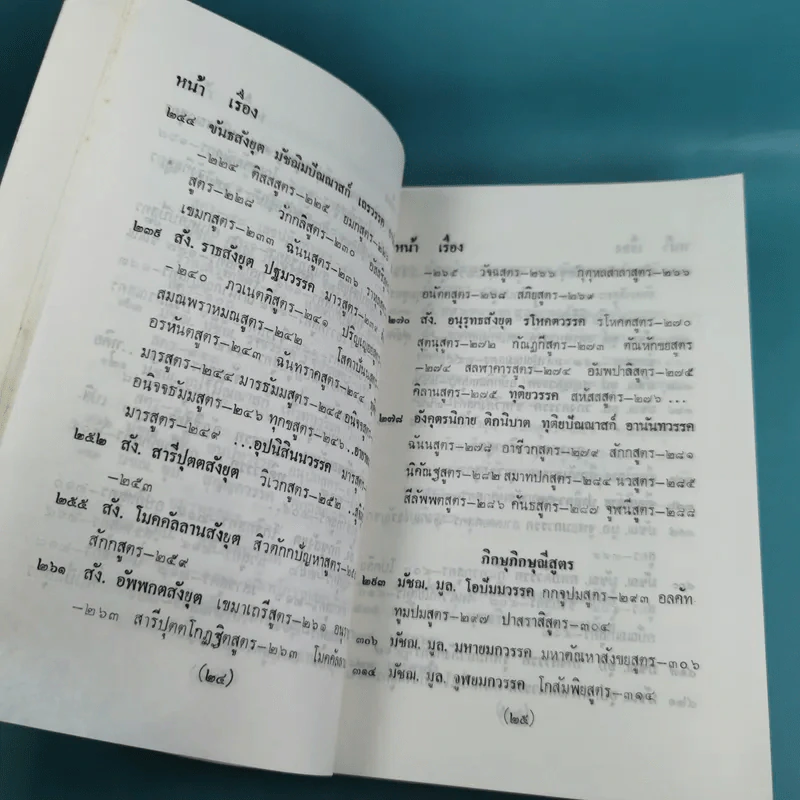 หน้า เรื่อง
๒๔๔ ขันธสังยุต มัชฌิมปัณณาสก์ เถรวรรค
–๒๒๔ ติสสสูตร–๒๒๕ ยมกสูตร–๒๒๘
สูตร–๒๒๘ วักกลิสูตร–๒๓๐
เขมกสูตร–๒๓๓ ฉันนสูตร–๒๓๖
๒๓๙ สัง. ราธสังยุต ปฐมวรรค มารสูตร–๒๓๙
–๒๔๐ ภวเนตติสูตร–๒๔๑
สมณพราหมณสูตร–๒๔๒
อรหันตสูตร–๒๔๓ ฉันทราคสูตร–๒๔๔
มารสูตร–๒๔๔ มารธัมมสูตร–๒๔๕
อนิจจธัมมสูตร–๒๔๖ ทุกขสูตร–๒๔๖
มารสูตร–๒๔๙ ...อุปนิสินนวรรค
๒๕๒ สัง. สารีปุตตสังยุต วิเวกสูตร–๒๕๒
–๒๕๓
๒๕๕ สัง. โมคคัลลานสังยุต สิวตักกปัญหาสูตร
สักกสูตร–๒๕๙
๒๖๑ สัง. อัพพกตสังยุต เขมาเถรีสูตร–๒๖๑
–๒๖๓ สารีปุตตโกฏฐิตสูตร–๒๖๓
(๒๔)
หน้า เรื่อง
–๒๖๕ วัจฉสูตร–๒๖๖ กุตุหลสาลาสูตร–๒๖๖
อนัตตสูตร–๒๖๘ สภิยสูตร–๒๖๙
๒๗๐ สัง. อนุรุทธสังยุต รโหคตวรรค รโหคตสูตร–๒๗๐
สุตนุสูตร–๒๗๒ กัณฏกีสูตร–๒๗๓ ตัณหักขยสูตร
–๒๗๔ สลฬาคารสูตร–๒๗๔ อัมพปาลิสูตร–๒๗๕
คิลานสูตร–๒๗๕ ทุติยวรรค สหัสสสูตร–๒๗๖ ...
๒๗๘ อังคุตรนิกาย ติกนิบาต ทุติยปัณณาสก์ อานันทวรรค
ฉันนสูตร–๒๗๘ อาชีวกสูตร–๒๗๙ สักกสูตร–๒๘๑
นิคัณฐสูตร–๒๘๒ สมาทปกสูตร–๒๘๔ นวสูตร–๒๘๕
สีลัพพตสูตร–๒๘๖ คันธสูตร–๒๘๗ จูฬนีสูตร–๒๘๘
ภิกษุภิกษุณีสูตร
๒๙๓ มัชฌ. มูล. โอปัมมวรรค กกจูปมสูตร–๒๙๓ อลคัท
ทูมปมสูตร–๒๙๗ ปาสราสิสูตร–๓๐๔
๓๐๖ มัชฌ. มูล. มหายมกวรรค มหาตัณหาสังขยสูตร–๓๐๖
๓๑๔ มัชฌ. มูล. จูฬยมกวรรค โกสัมพิยสูตร–๓๑๔
(๒๕)